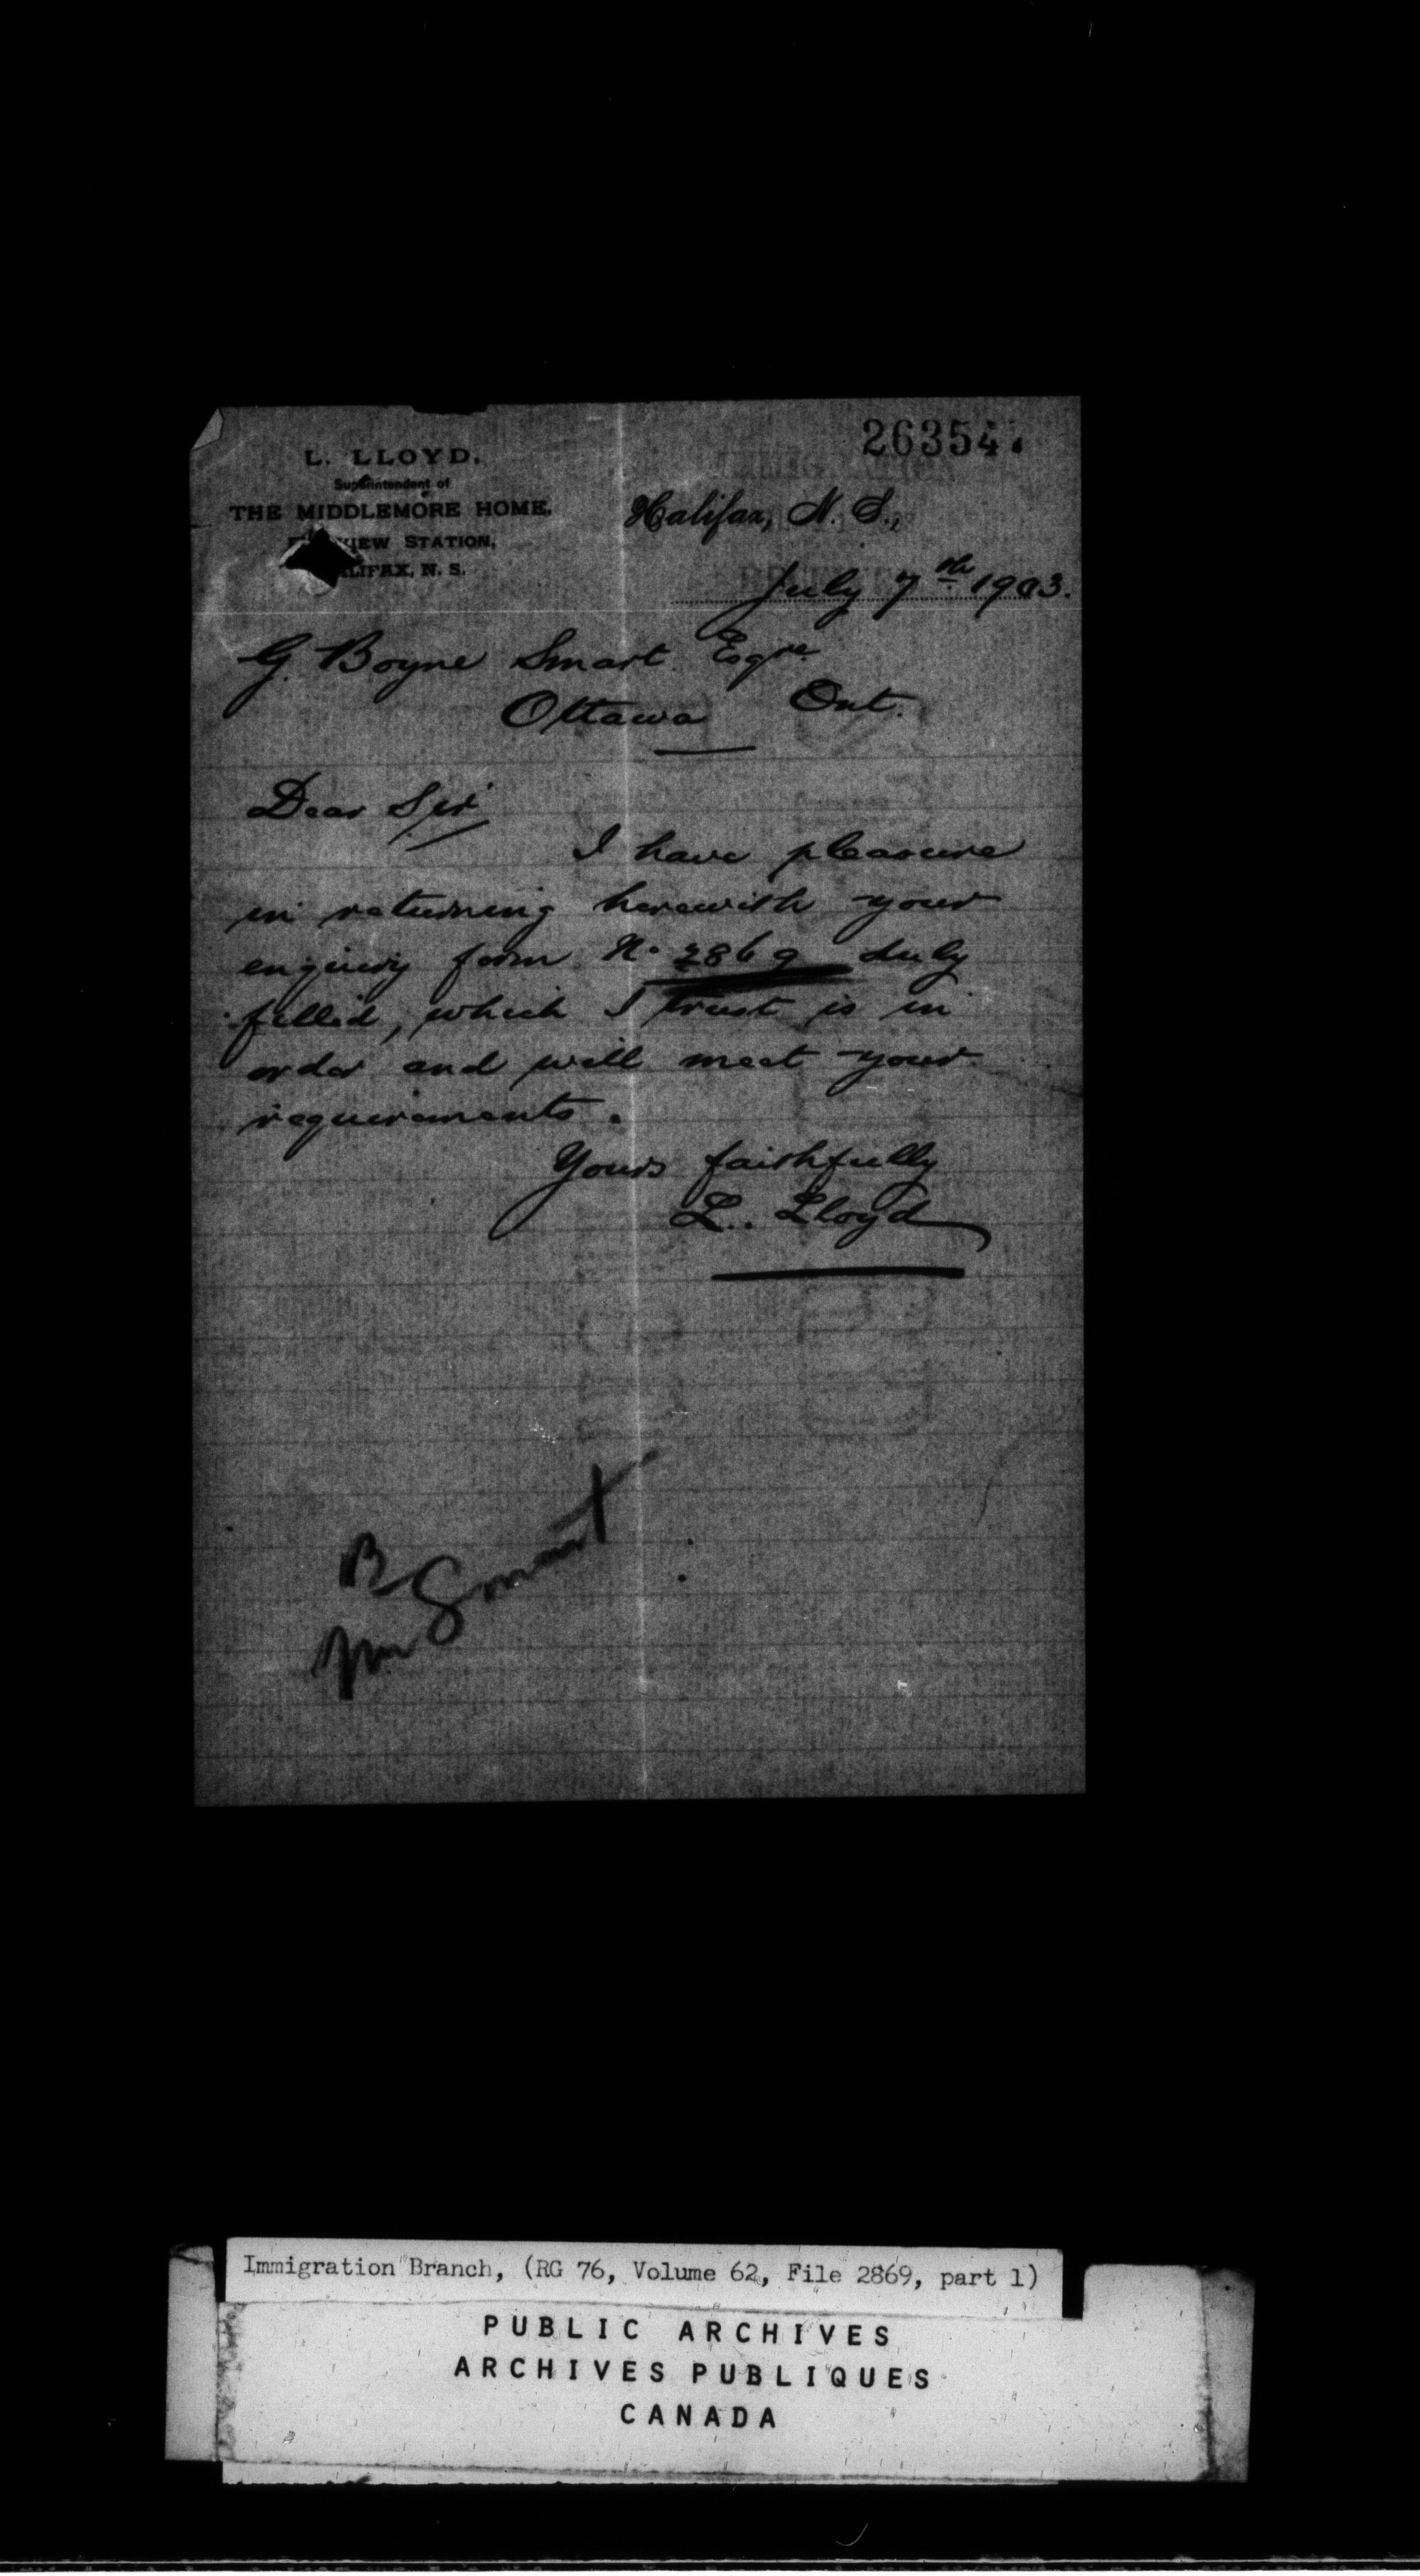 26354.
L. LLOYD.
Superintendent of
THE MIDDLEMORE HOME,
VIEW STATION,
LIFAX, N. S.
Halifax, N. S.,
July 7th 1903.
G. Boyne Smart. Esqre.
Ottawa Ont.
Dear Sir
I have pleasure
in returning herewith your
enquiry form No 2869 duly
filled, which I trust is in
order and will meet your
requirements.
Yours faithfully
L. Lloyd
B
Mr Smart
Immigration Branch, (RG 76, Volume 62, File 2869, part 1)
PUBLIC ARCHIVES
ARCHIVES PUBLIQUES
CANADA